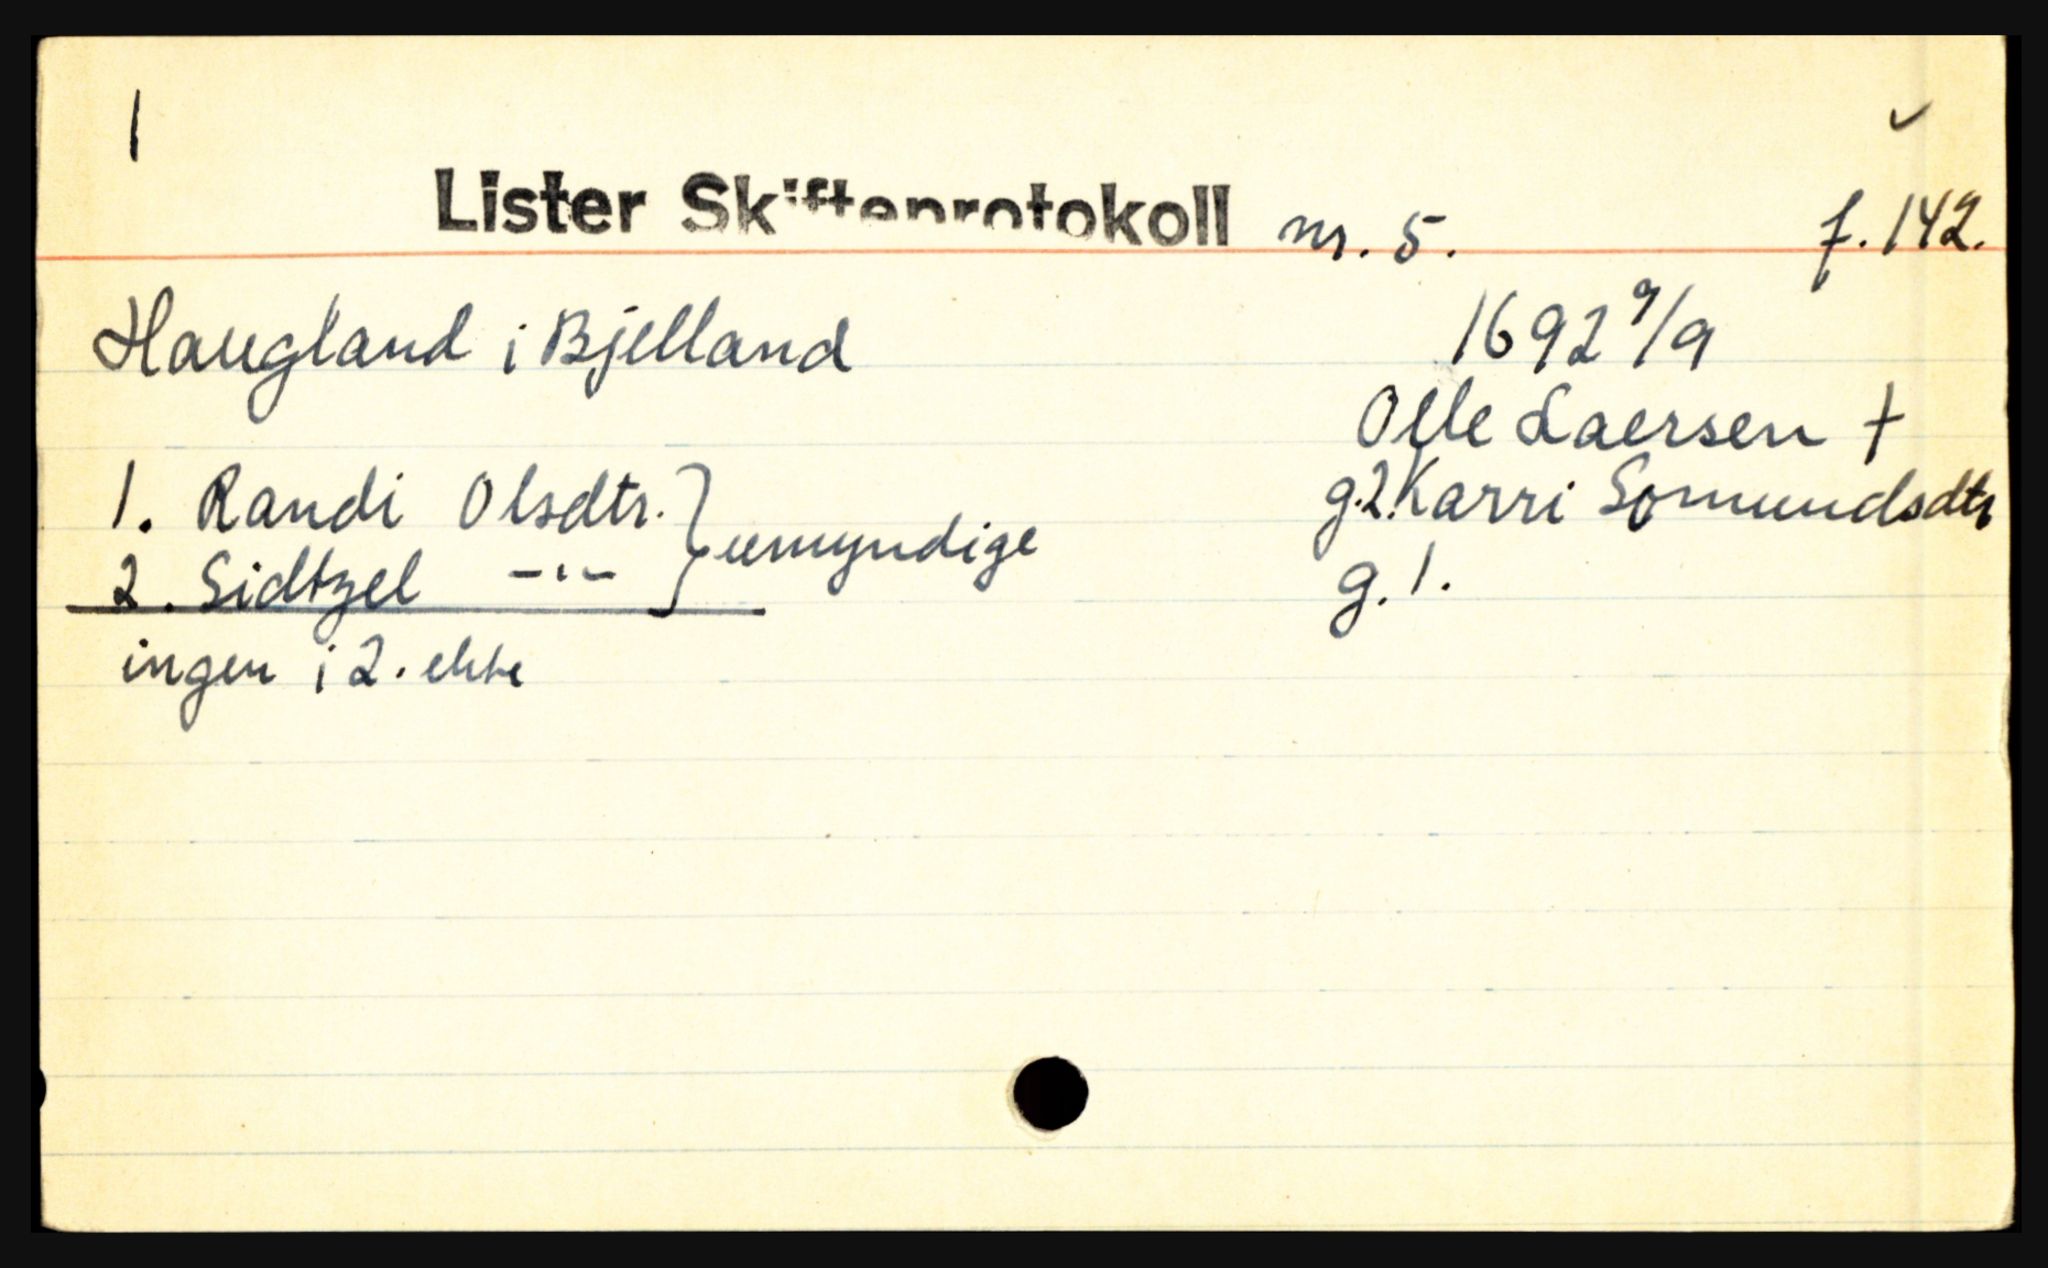 1
Lister Skifteprotokoll nr. 5. f. 142.
Haugland i Bjelland 1692 9/9
Olle Laersen †
1. Randi Olsdtr. } umyndige g.2. Karri Somundsdtr
2. Sidtzel -"- g. 1.
ingen i 2. ekte